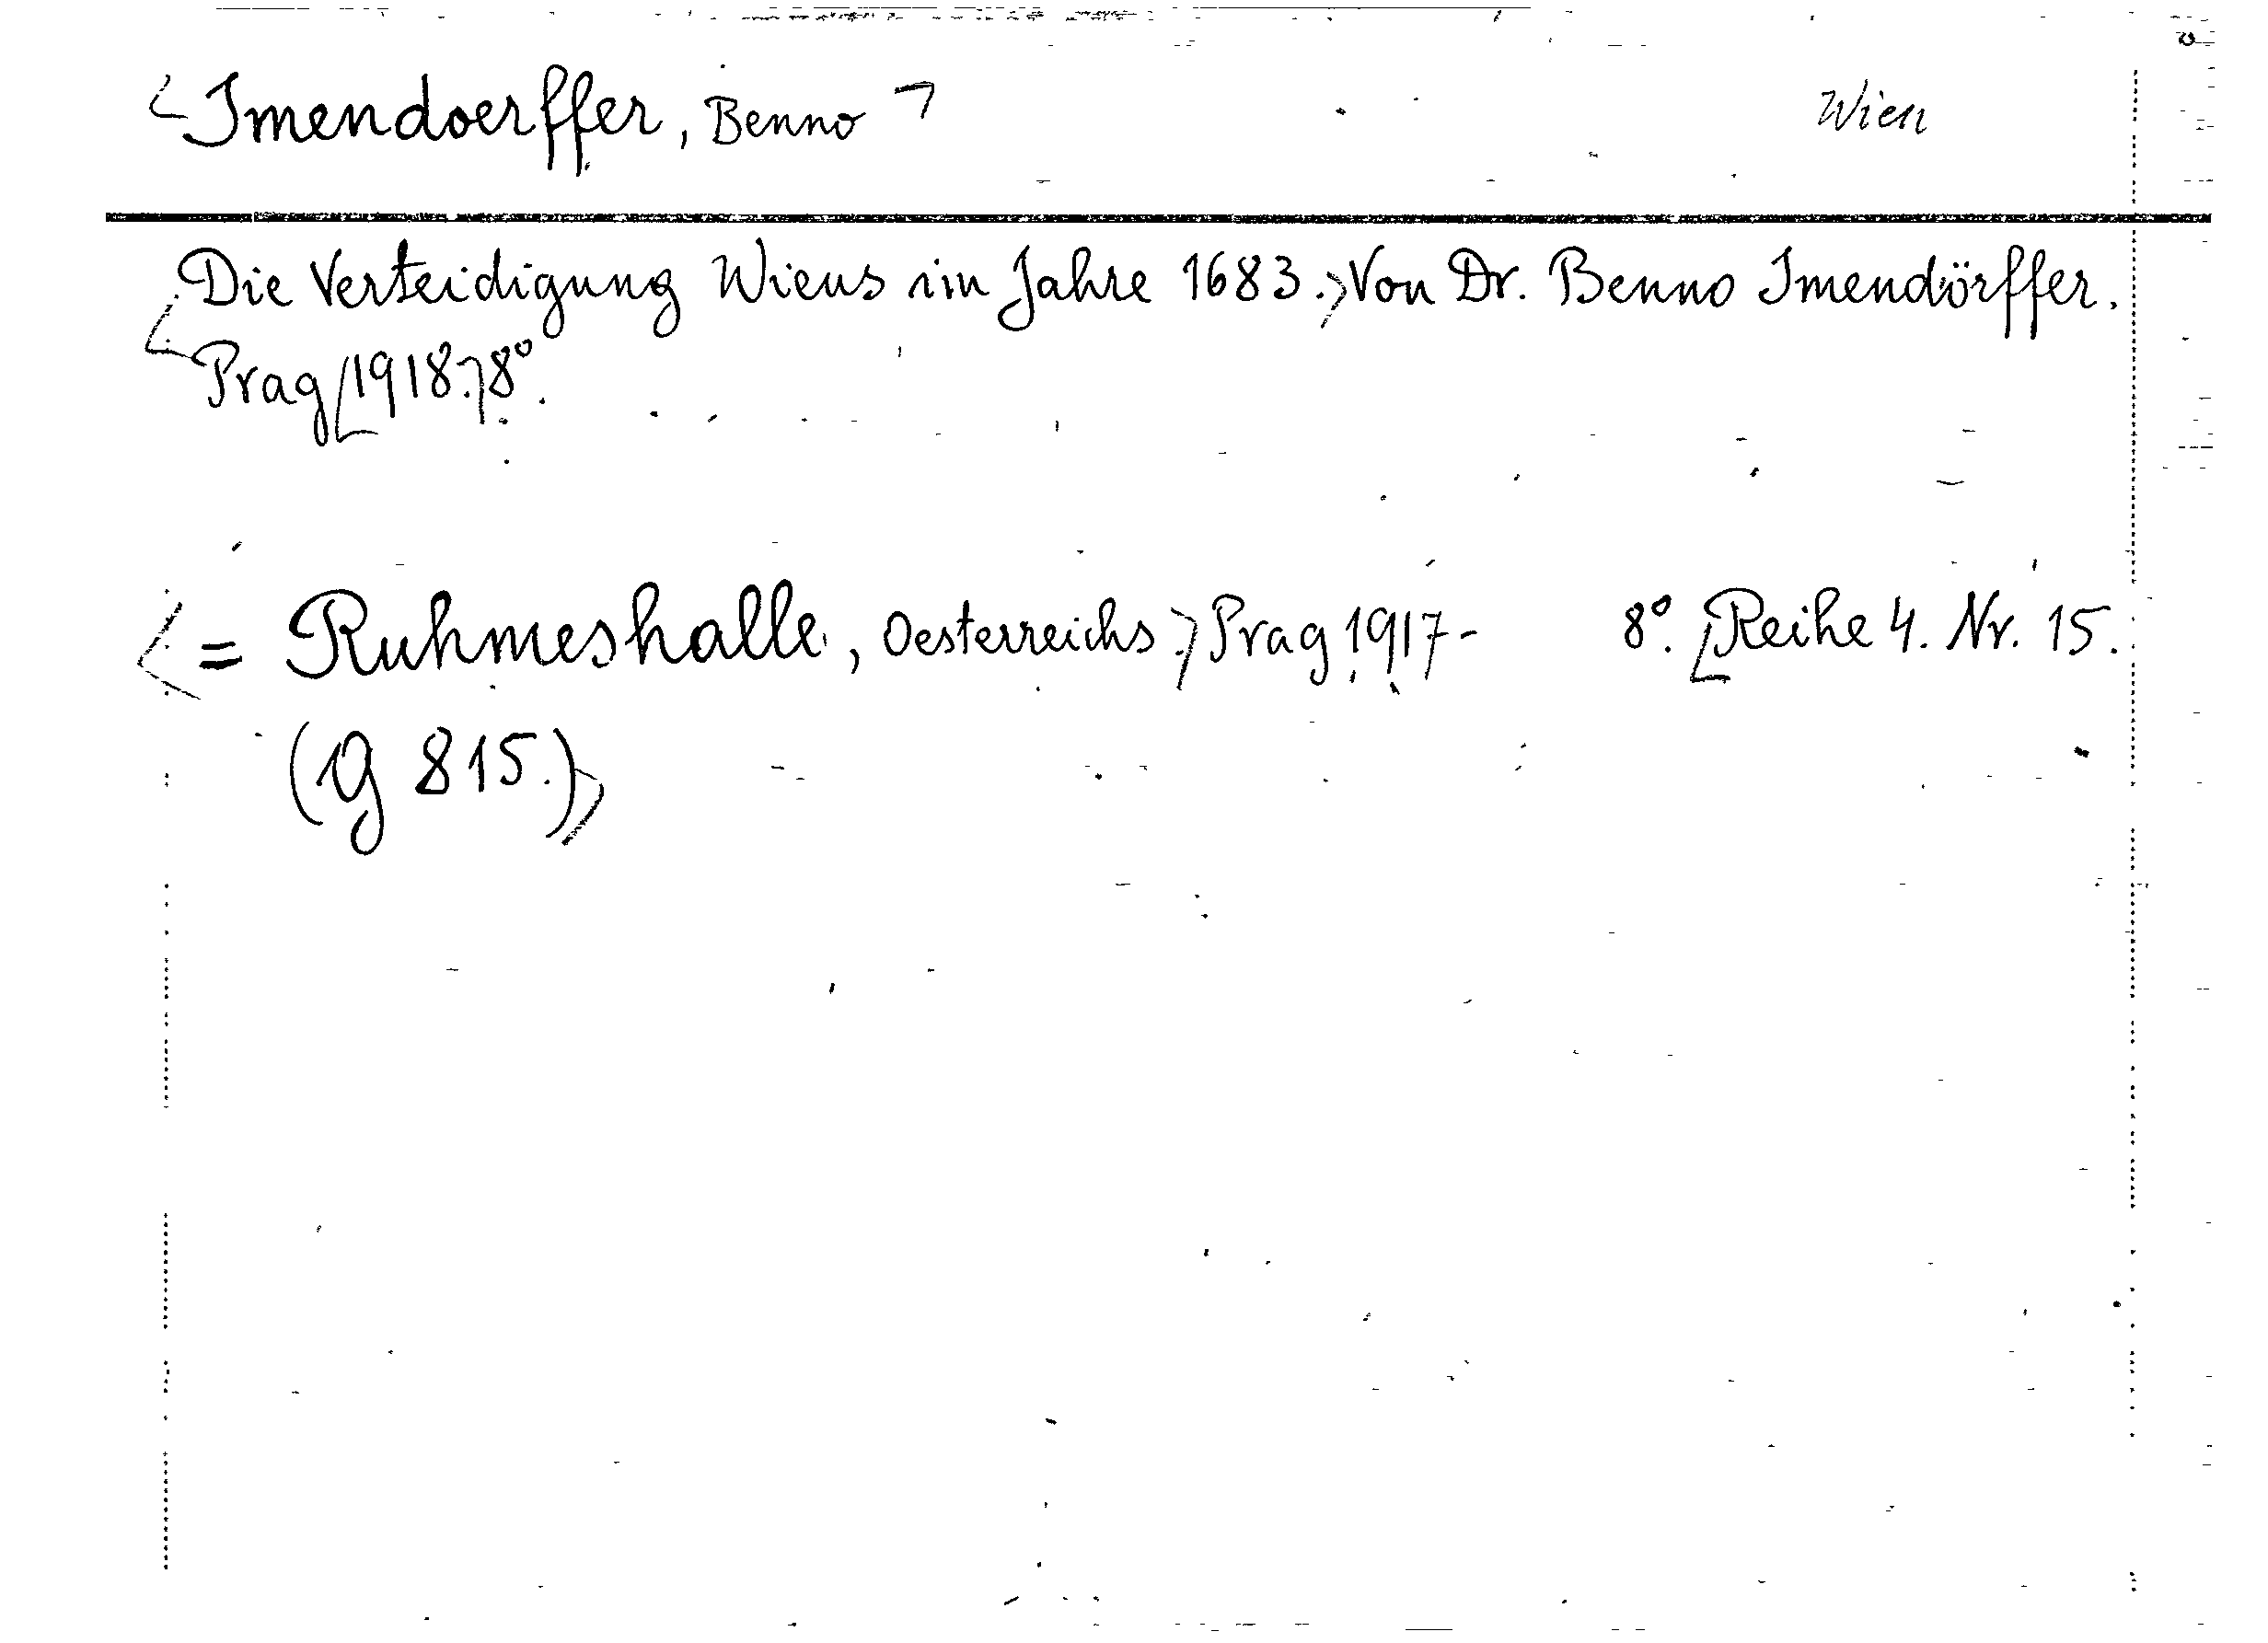 <Imendoerffer, Benno> Wien
<Die Verteidigung Wiens im Jahre 1683.> Von Dr. Benno Imendörffer.
Prag [1918.] 8°.
<= Ruhmeshalle, Oesterreichs.] Prag 1917- 8°. [Reihe 4. Nr. 15.
(g 815.)>